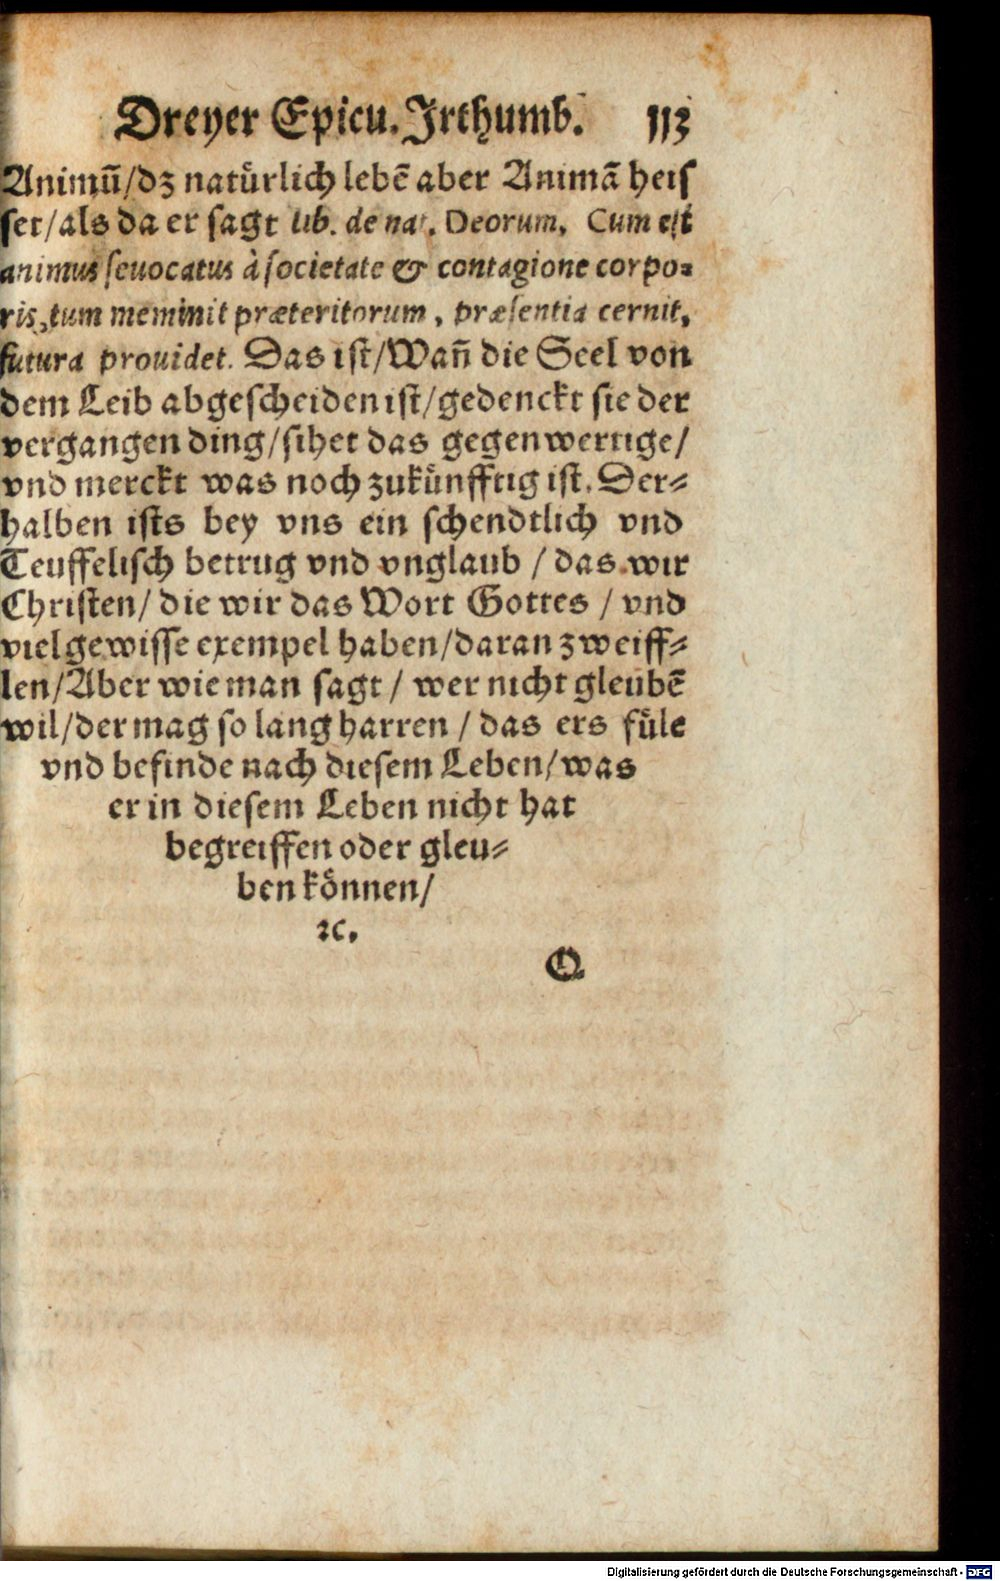 Dreyer Epicu. Jrthumb. 113
Animũ/dz natuͤrlich lebẽ aber Animã heiſ
ſet/als da er ſagt lib. de nat. Deorum. Cum eſt
animus ſeuocatus à ſocietate & contagione corpo-
ris, tum meminit præteritorum, præſentia cernit,
futura prouidet. Das iſt/Wañ die Seel von
dem Leib abgeſcheiden iſt/gedenckt ſie der
vergangen ding/ſihet das gegenwertige/
vnd merckt was noch zukuͤnfftig iſt. Der⸗
halben iſts bey vns ein ſchendtlich vnd
Teuffeliſch betrug vnd vnglaub / das wir
Chriſten/ die wir das Wort Gottes / vnd
viel gewiſſe exempel haben/daran zweiff⸗
len/Aber wie man ſagt / wer nicht gleubẽ
wil/der mag ſo lang harren / das ers fuͤle
vnd befinde nach dieſem Leben/was
er in dieſem Leben nicht hat
begreiffen oder gleu⸗
ben koͤnnen/
ꝛc.
Q
Digitalisierung gefördert durch die Deutsche Forschungsgemeinschaft - DFG